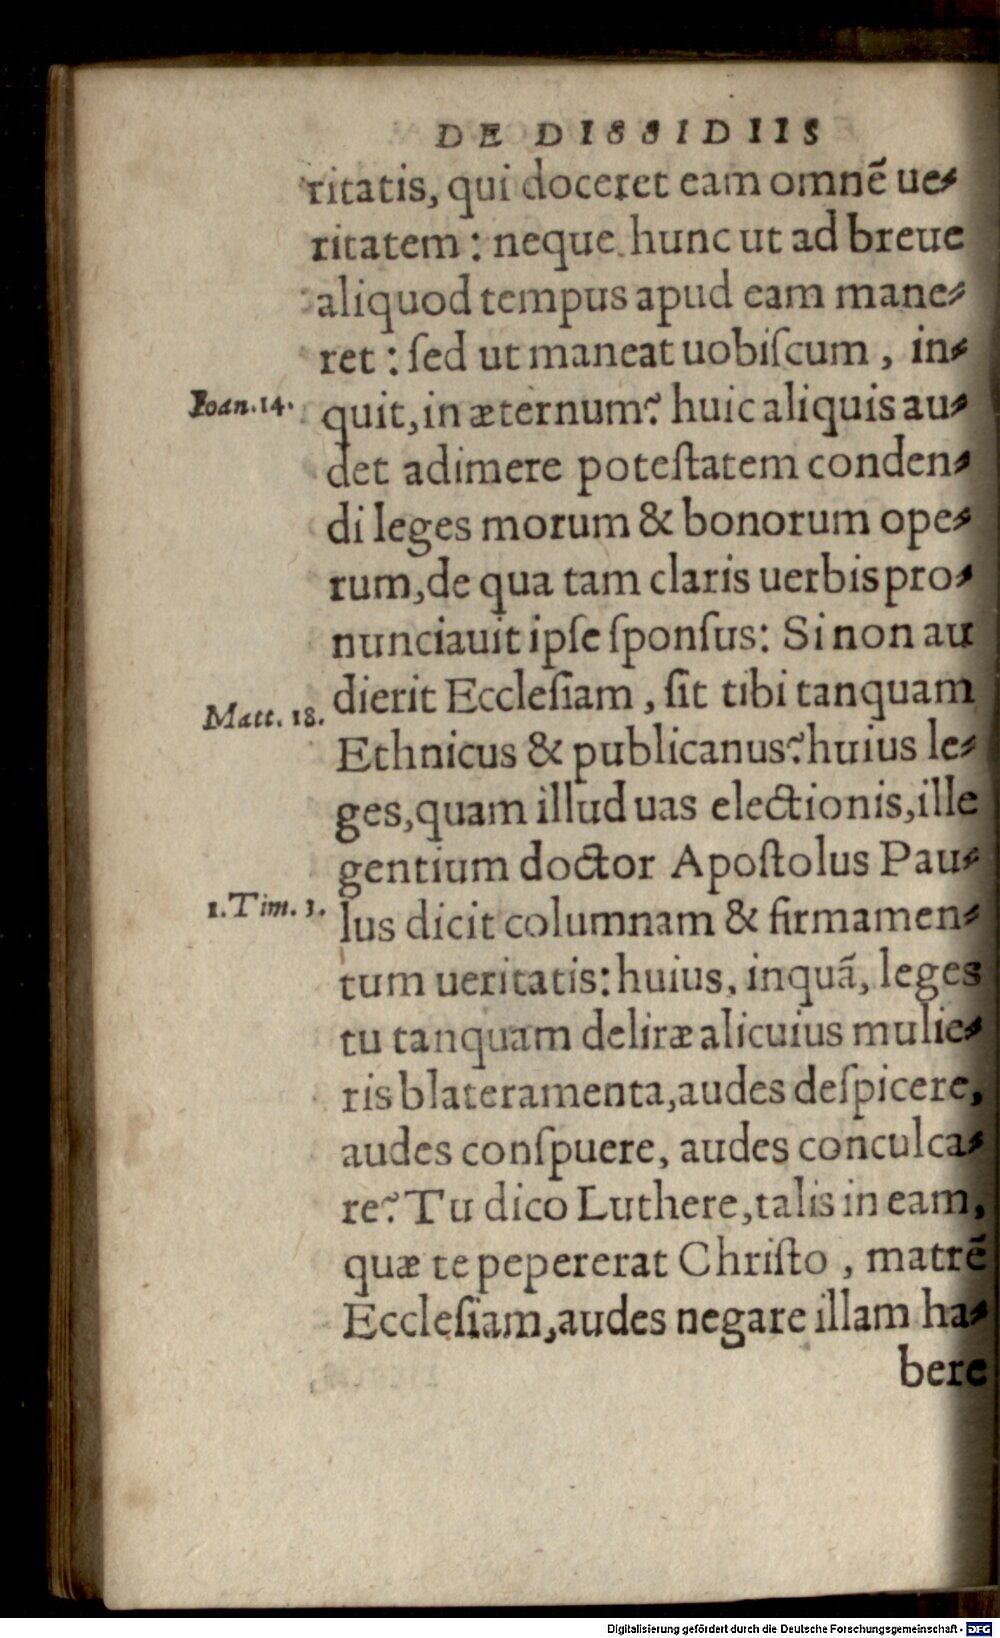 DE DISSIDIIS
ritatis, qui doceret eam omnẽ ue⸗
ritatem : neque hunc ut ad breue
aliquod tempus apud eam mane⸗
ret : ſed ut maneat uobiſcum , in⸗
Ioan.14.
quit, in æternum? huic aliquis au⸗
det adimere poteſtatem conden⸗
di leges morum & bonorum ope⸗
rum, de qua tam claris uerbis pro⸗
nunciauit ipſe ſponſus: Si non au
dierit Eccleſiam , ſit tibi tanquam
Matt. 18.
Ethnicus & publicanus? huius le⸗
ges, quam illud uas electionis, ille
gentium doctor Apoſtolus Pau⸗
1.Tim. 3.
lus dicit columnam & firmamen⸗
tum ueritatis: huius, inquã, leges
tu tanquam deliræ alicuius mulie⸗
ris blateramenta, audes deſpicere,
audes conſpuere, audes conculca⸗
re? Tu dico Luthere, talis in eam,
quæ te pepererat Chriſto , matrẽ
Eccleſiam, audes negare illam ha⸗
bere
Digitalisierung gefördert durch die Deutsche Forschungsgemeinschaft - DFG